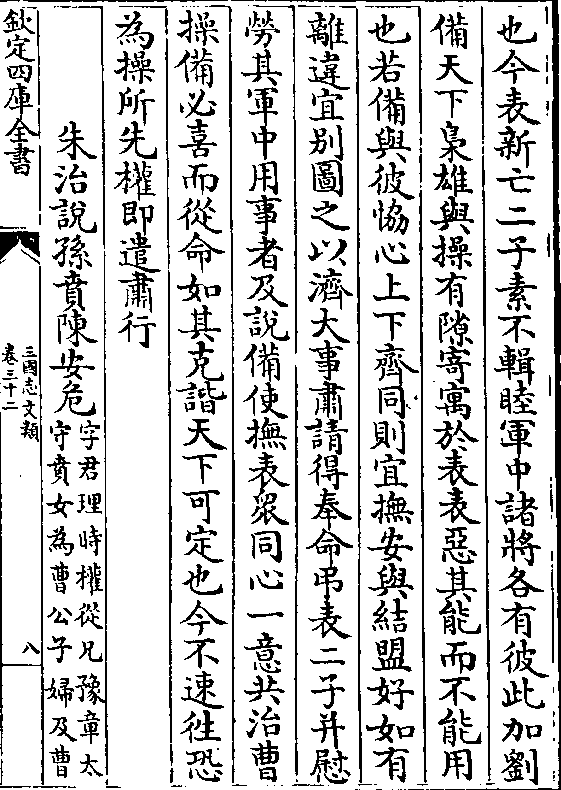 也今表新亡二子素不輯睦軍中諸將各有彼此加劉
備天下梟雄與操有隙寄寓於表表惡其能而不能用
也若備與彼恊心上下齊同則宜撫安與結盟好如有
離違宜别圖之以濟大事肅請得奉命弔表二子并慰
勞其軍中用事者及說備使撫表衆同心一意共治曹
操備必喜而從命如其克諧天下可定也今不速徃恐
為操所先權即遣肅行
朱治說孫賁陳安危
字君理時權從兄豫章太
守賁女為曹公子婦及曹
欽定四庫全書
三國志文類
卷三十二
八